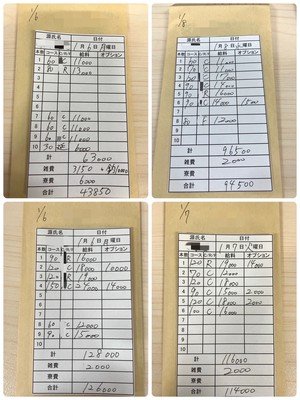 1/6
源氏名 日付
1月6日月曜日
本数 コース 給料 オプション
1 60 C 11000
2 80 R 13000
3
4
5
6
7 60 C 11000
8 60 C 11000
9 60 C 11000
10 30 延 6000
計 63000
雑費 3150
寮費 6000
合計 43850
1/8
源氏名 日付
1月8日 曜日
本数 コース 給料 オプション
1 60 C 11000
2 C
3 60 C 11000
4
5 90 R 16000
6 C 14000 1500
7
8 80 12000
9
10
計 96500
雑費 2000
寮費
合計 94500
1/6
源氏名 日付
1月6日 曜日
本数 コース 給料 オプション
1 90 16000
2 120 C 18000 10000
3 120 19000
4 150 24000 14000
5
6
7
8 80 C 12000
9 90 15000
10
計 128000
雑費 2000
寮費
合計 126000
1/7
源氏名 日付
1月7日 曜日
本数 コース 給料 オプション
1 120 R 19000 14000
2 70 C 12000
3 120 C 18000
4 90 C 15000 2000
5 120 C 18000 2000
6 100 C 16000
7
8
9
10
計 116000
雑費 2000
寮費
合計 114000